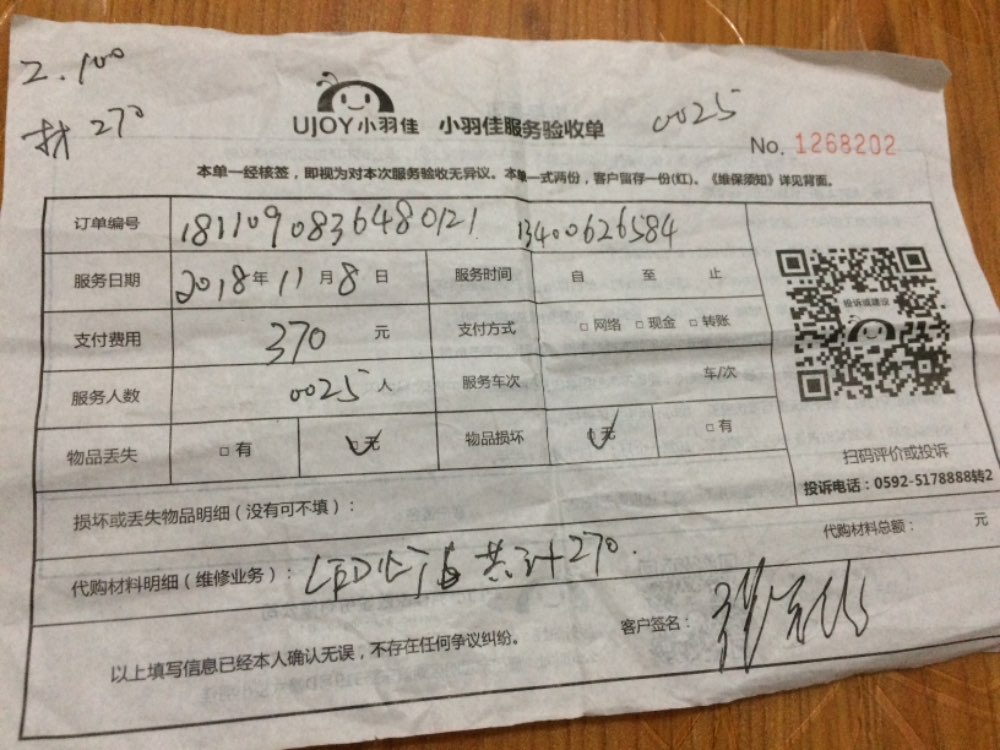 2.100
找 270
UJOY小羽佳 小羽佳服务验收单 0025
No. 1268202
本单一经核签，即视为对本次服务验收无异议。本单一式两份，客户留存一份(红)。《维保须知》详见背面。
订单编号 1811090836480121 13400626584
服务日期 2018年11月8日 服务时间 自 至 止
支付费用 370 元 支付方式 □网络 □现金 □转账
服务人数 0025人 服务车次 车/次
投诉或建议
物品丢失 □有 □无 物品损坏 □无 □有
扫码评价或投诉
投诉电话：0592-5178888转2
损坏或丢失物品明细（没有可不填）：
代购材料总额： 元
代购材料明细（维修业务）： LED 共计270.
客户签名：
以上填写信息已经本人确认无误，不存在任何争议纠纷。